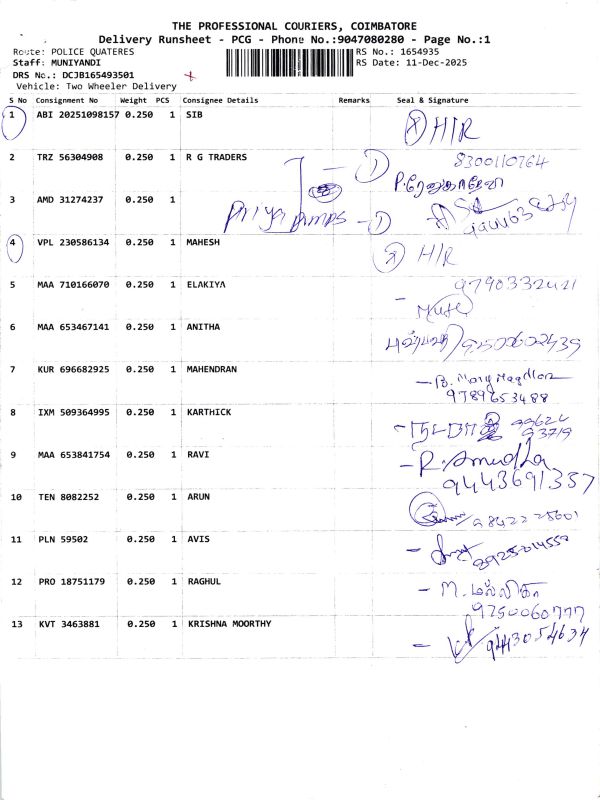 THE PROFESSIONAL COURIERS, COIMBATORE
Delivery Runsheet - PCG - Phone No.:9047080280 - Page No.:1
Route: POLICE QUATERES
RS No.: 1654935
Staff: MUNIYANDI
RS Date: 11-Dec-2025
DRS No.: DCJB165493501
Vehicle: Two Wheeler Delivery
S No Consignment No Weight PCS Consignee Details Remarks Seal & Signature
1 ABI 20251098157 0.250 1 SIB
H/R
2 TRZ 56304908 0.250 1 R G TRADERS
8300110764
3 AMD 31274237 0.250 1
Priya
4 VPL 230586134 0.250 1 MAHESH
H/R
5 MAA 710166070 0.250 1 ELAKIYA
9790332421
6 MAA 653467141 0.250 1 ANITHA
9250060 2439
7 KUR 696682925 0.250 1 MAHENDRAN
B. Mary
9789653488
8 IXM 509364995 0.250 1 KARTHICK
99624
93719
9 MAA 653841754 0.250 1 RAVI
R. Amudha
9443691357
10 TEN 8082252 0.250 1 ARUN
98422 28601
11 PLN 59502 0.250 1 AVIS
8925014550
12 PRO 18751179 0.250 1 RAGHUL
M. மல்லிகா
9750060777
13 KVT 3463881 0.250 1 KRISHNA MOORTHY
9443054634